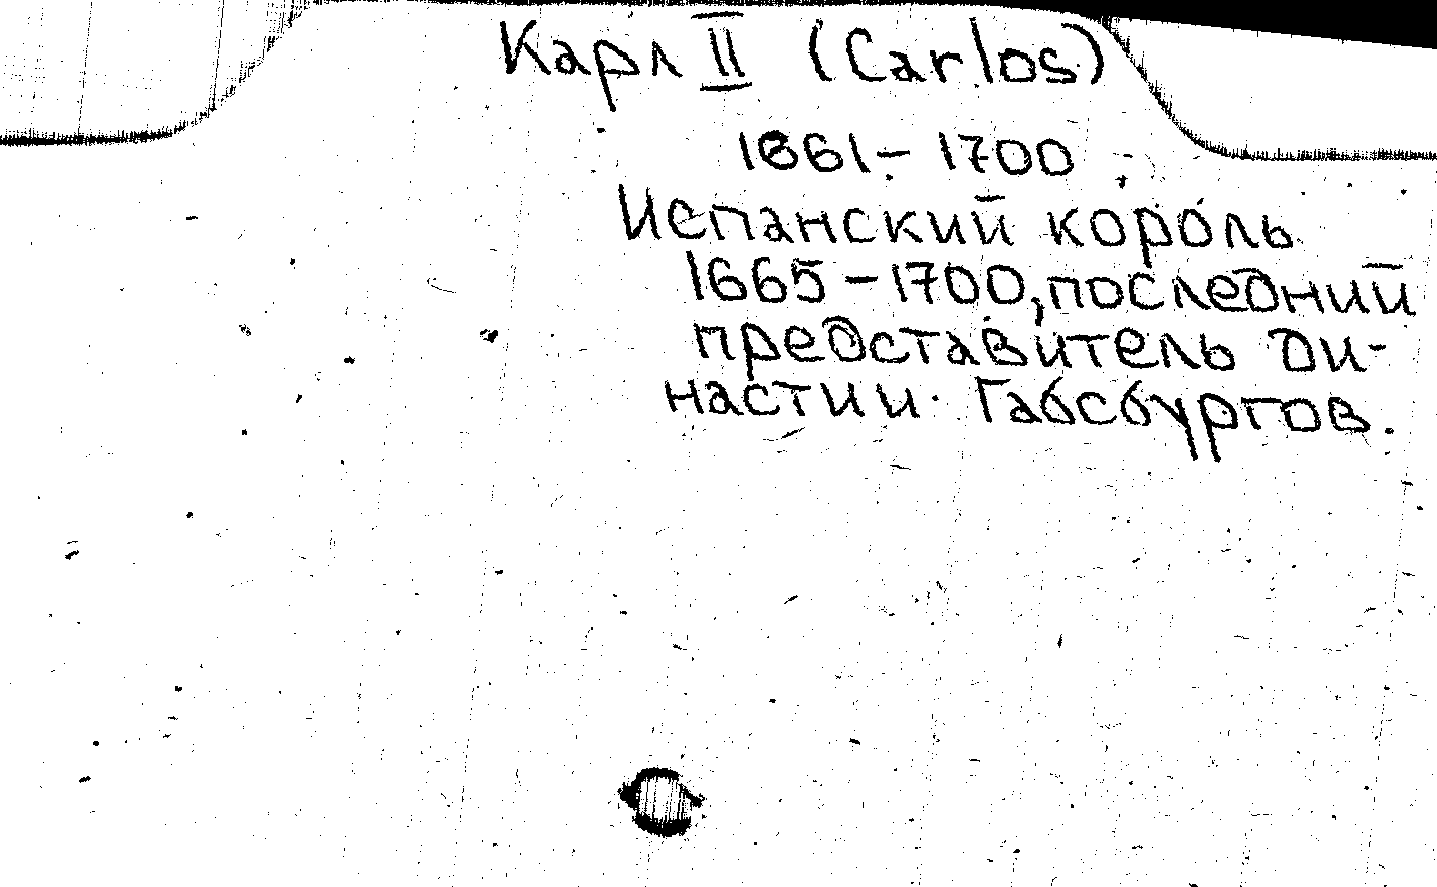 Карл II (Carlos)
1661 – 1700
Испанский король
1665 – 1700, последний
представитель ди-
настии Габсбургов.